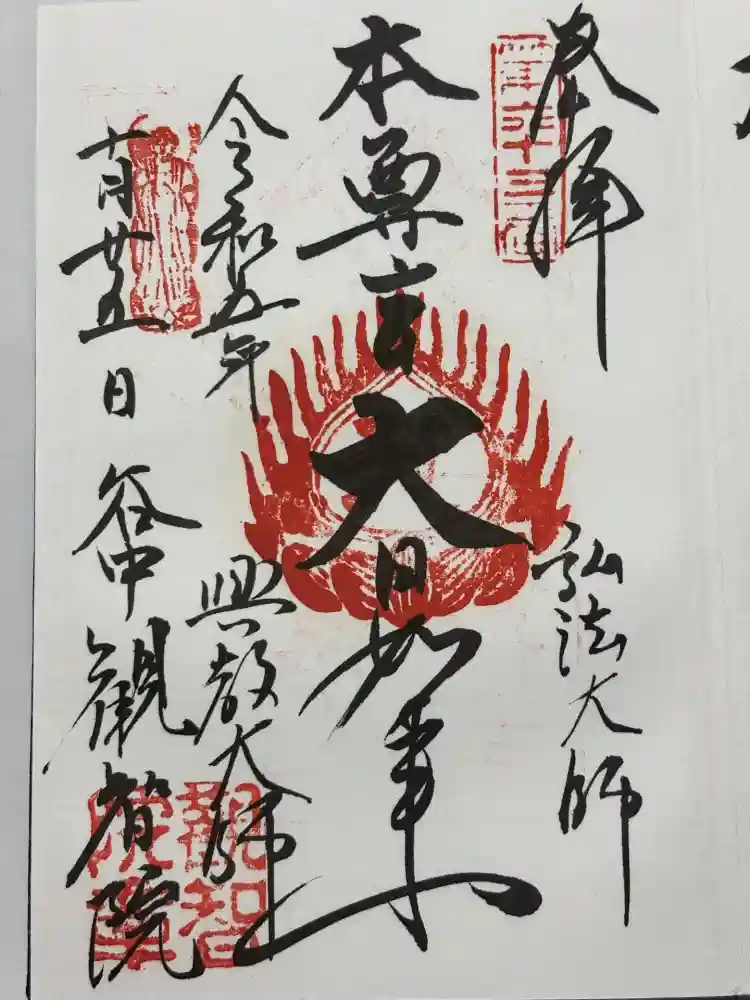 奉拝
弘法大師
本尊 大日如来
令和五年
興教大師
十月廿五日
谷中 観智院